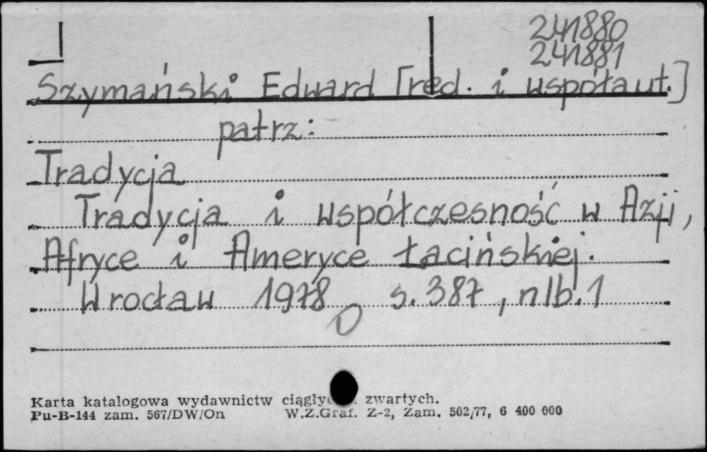 241880
241881
Szymański Edward [red. i współaut.]
patrz:
Tradycja
Tradycja i współczesność w Azji,
Afryce i Ameryce Łacińskiej.
Wrocław 1978 s. 387, nlb. 1
Karta katalogowa wydawnictw zwartych.
Pu-B-144 zam. 567/DW/On W.Z.Graf. Z-2, Zam. 502/77, 6 400 000